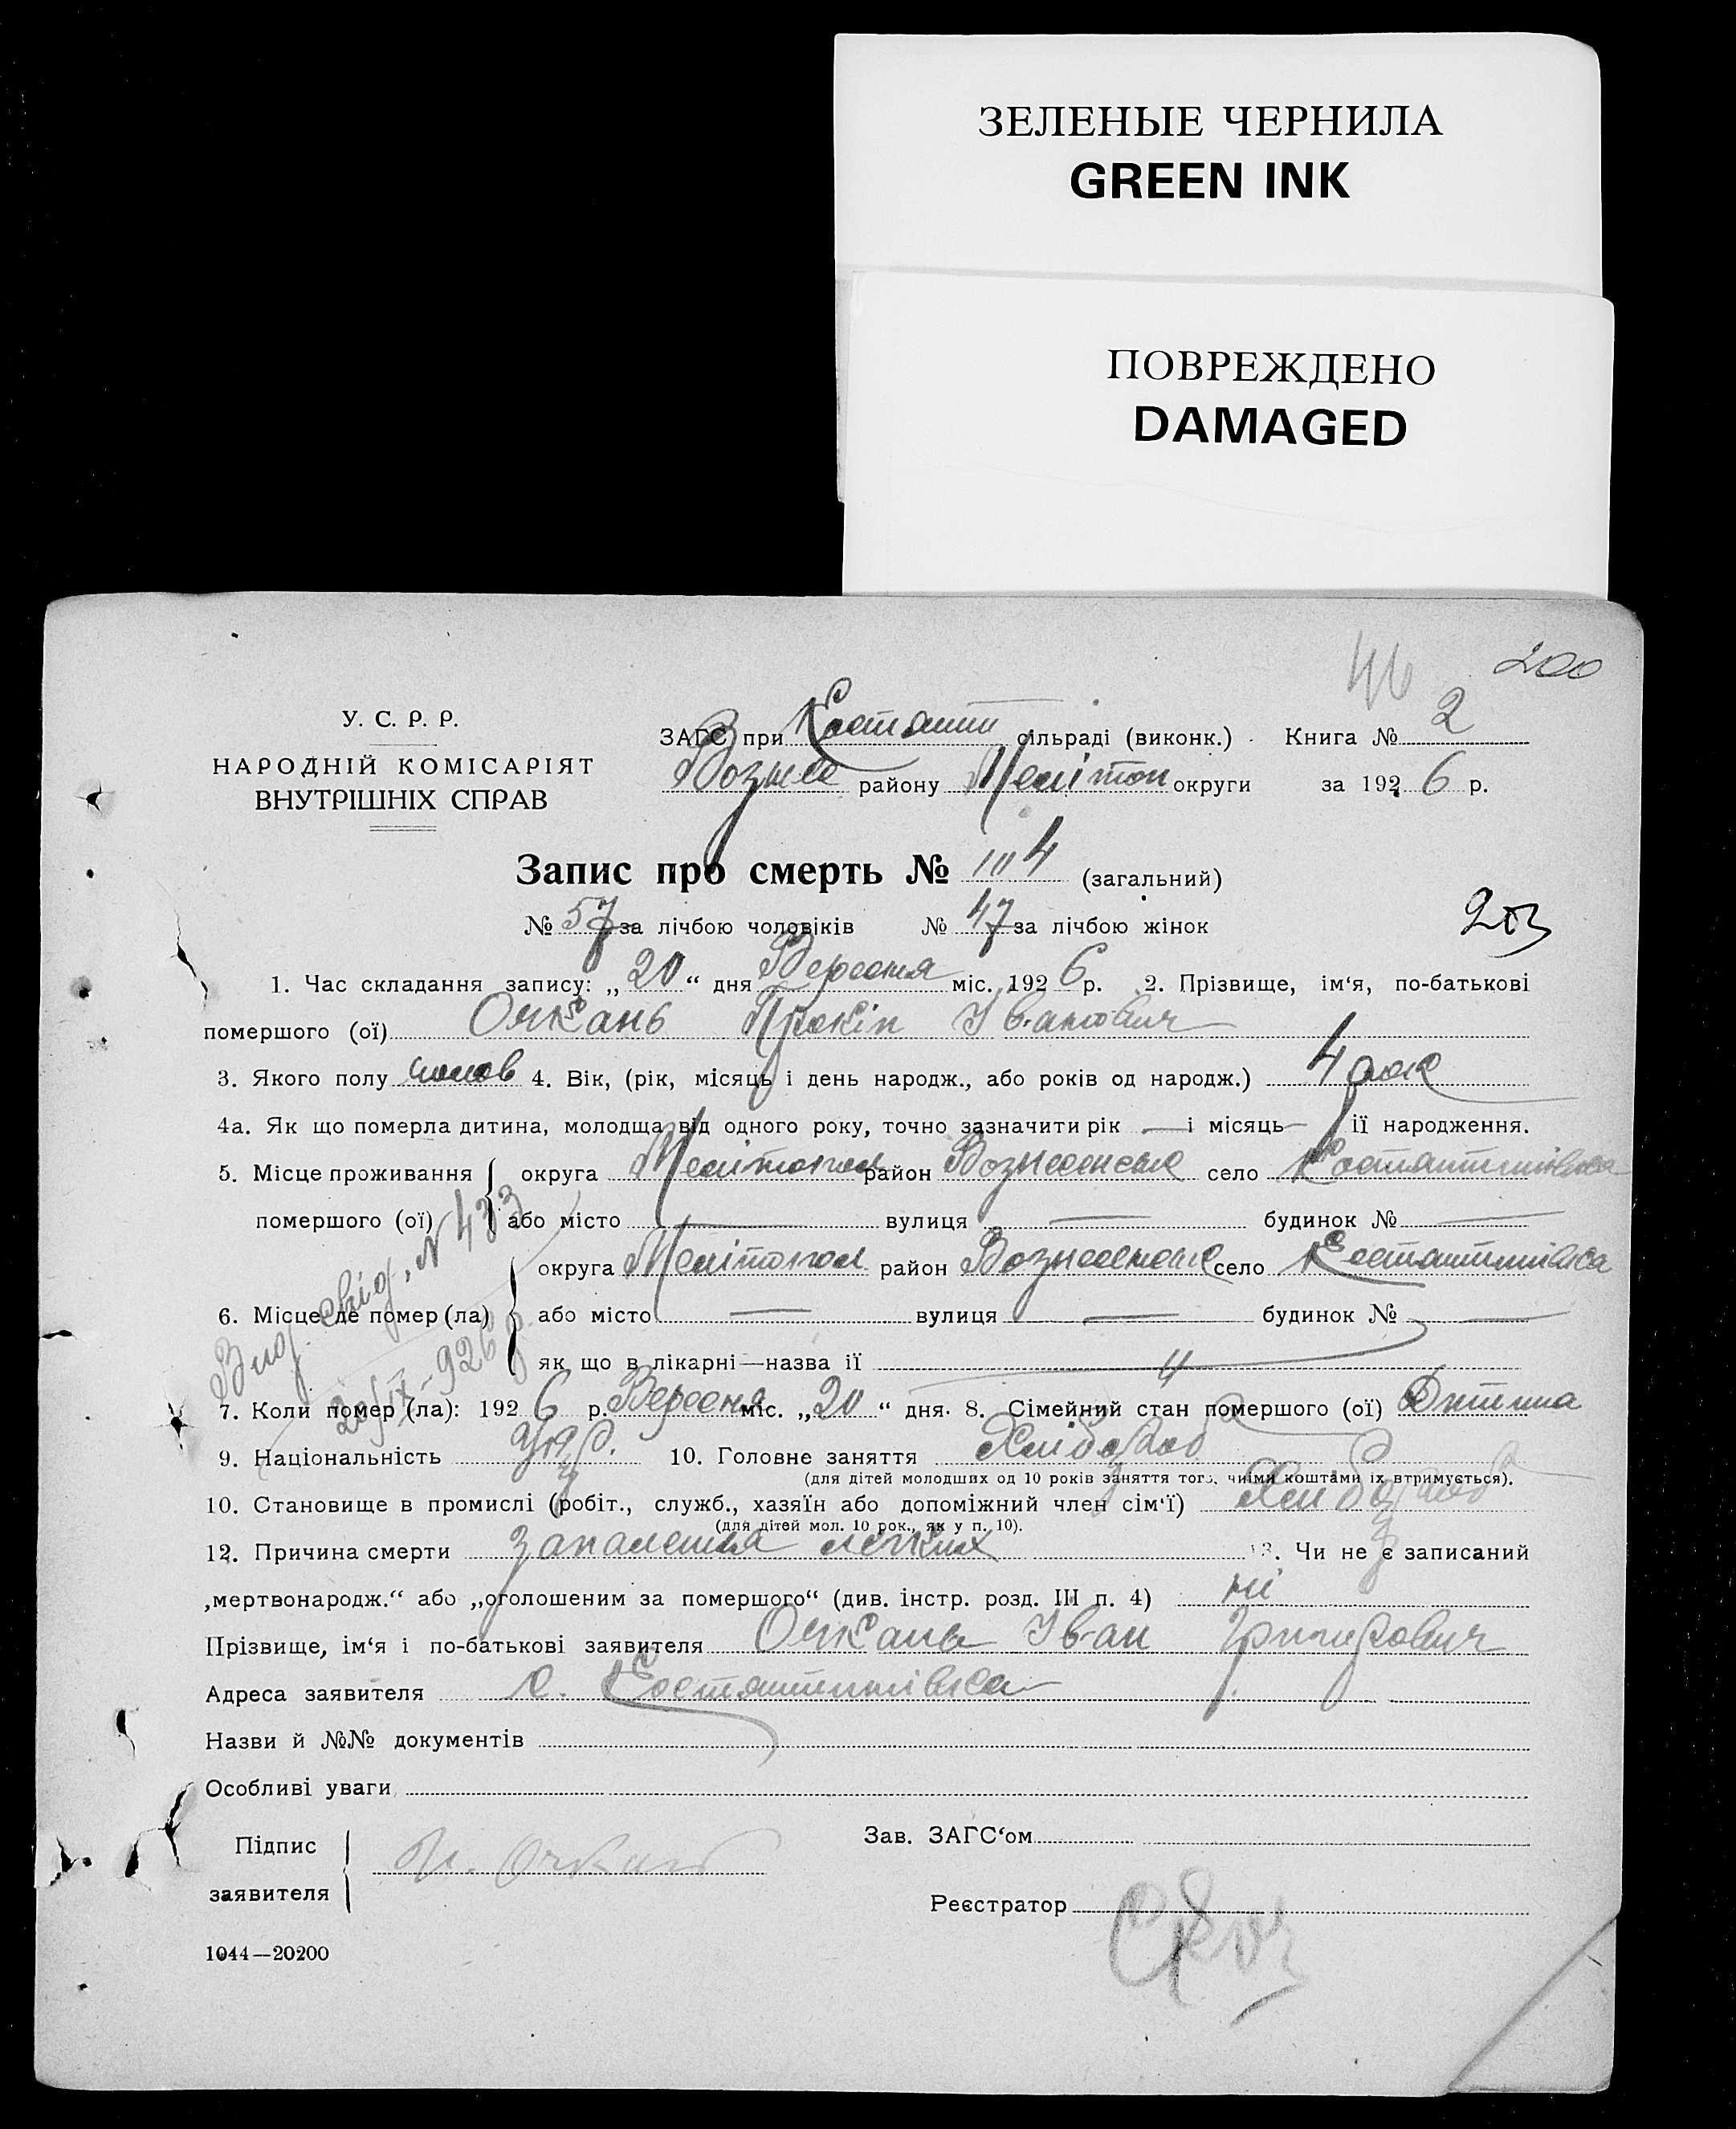 ЗЕЛЕНЫЕ ЧЕРНИЛА
GREEN INK
ПОВРЕЖДЕНО
DAMAGED
46 200
У. С. Р. Р.
НАРОДНІЙ КОМІСАРІЯТ
ВНУТРІШНІХ СПРАВ
ЗАГС при Костянти сільраді (виконк.) Книга № 2
Вознес району Мелітоп округи за 1926 р.
Запис про смерть № 104 (загальний)
№ 57 за лічбою чоловіків № 47 за лічбою жінок
203
1. Час складання запису: „20“ дня Вересня міс. 1926 р. 2. Прізвище, ім‘я, по-батькові
помершого (ої) Очкань Прокіп Іванович
3. Якого полу чолов 4. Вік, (рік, місяць і день народж., або років од народж.) 4 рок
4а. Як що померла дитина, молодща від одного року, точно зазначити рік — і місяць — її народження.
5. Місце проживання округа Мелітопол район Вознесенське село Костянтинівка
помершого (ої) або місто — вулиця — будинок № —
округа Мелітопол район Вознесенське село Костянтинівка
6. Місце де помер (ла) або місто — вулиця — будинок № —
як що в лікарні—назва її
Вид. свід. № 433
20/IX-926 р.
7. Коли помер (ла): 1926 р. Вересня міс. „20“ дня. 8. Сімейний стан помершого (ої) Дитина
9. Національність Укр. 10. Головне заняття Хлібороб
(для дітей молодших од 10 років заняття того, чиїми коштами їх втримується).
10. Становище в промислі (робіт., служб., хазяїн або допоміжний член сім‘ї) Хлібороб
(для дітей мол. 10 рок., як у п. 10).
12. Причина смерти запалення легких 13. Чи не є записаний
„мертвонародж.“ або „оголошеним за помершого“ (див. інстр. розд. III п. 4) ні
Прізвище, ім‘я і по-батькові заявителя Очкань Іван Григорович
Адреса заявителя с. Костянтинівка
Назви й №№ документів
Особливі уваги
Підпис
заявителя
Зав. ЗАГС‘ом
Реєстратор
1044—20200